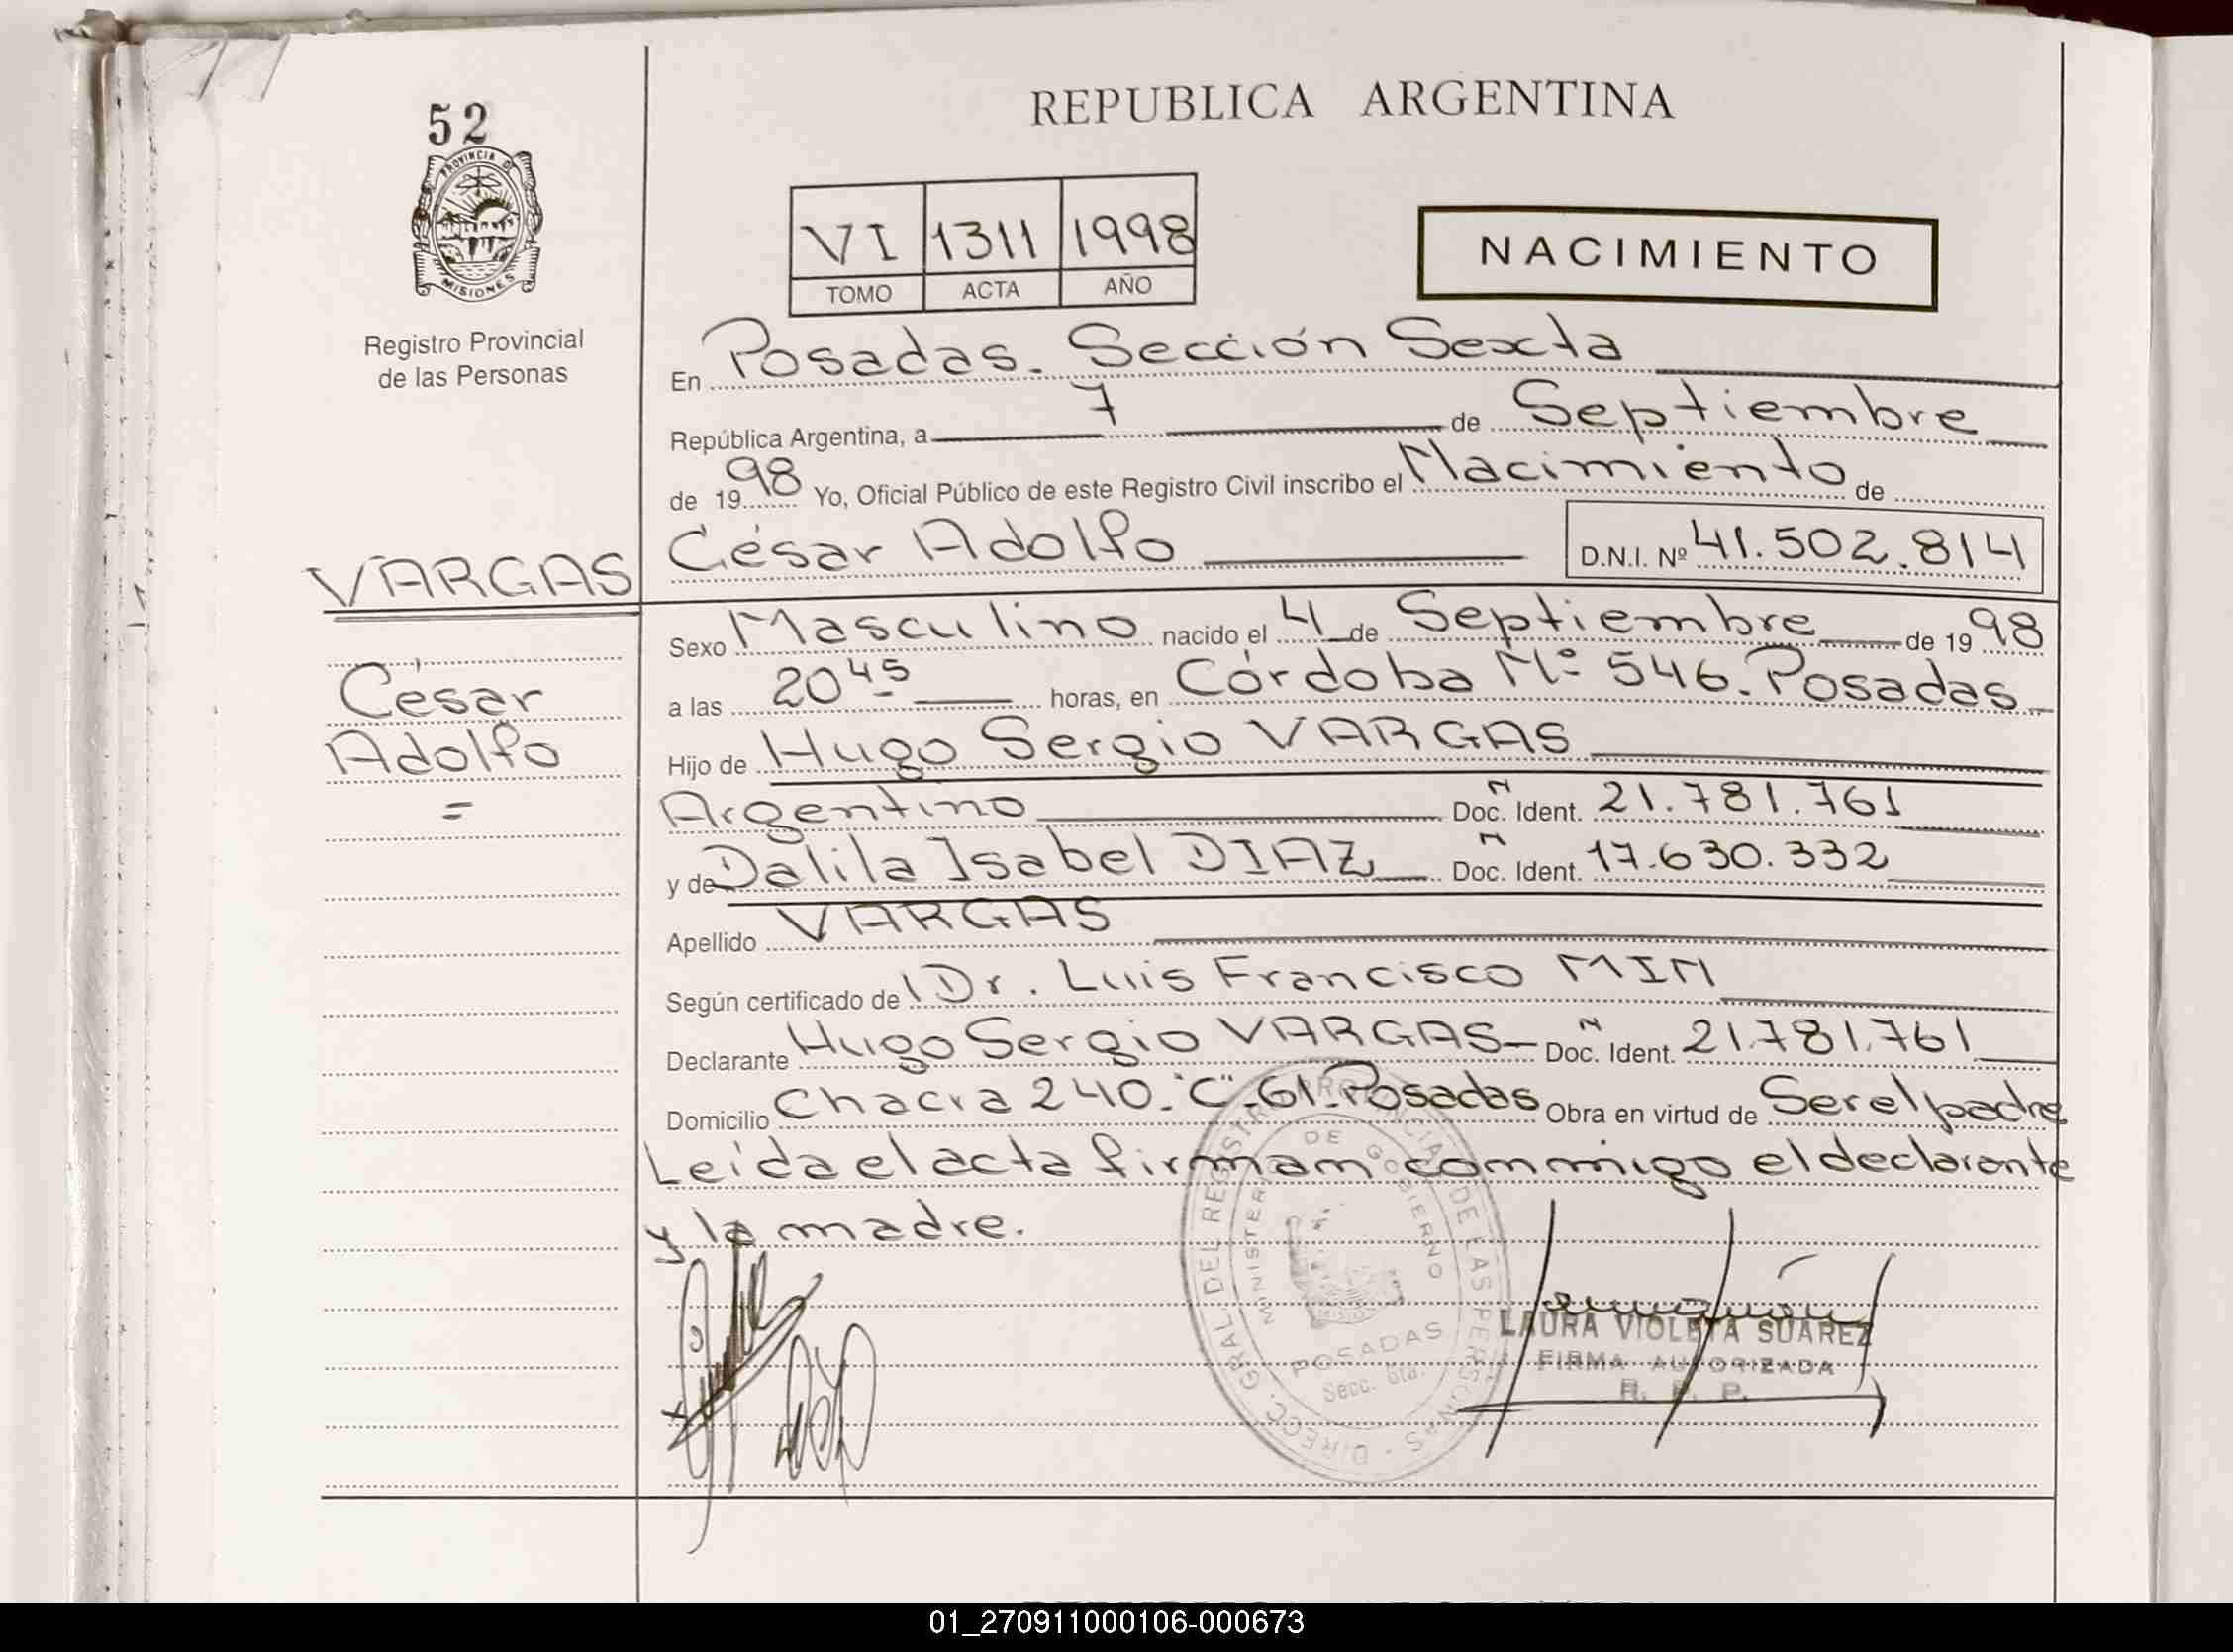 52
REPUBLICA ARGENTINA
PROVINCIA DE
MISIONES
Registro Provincial
de las Personas
VI 1311 1998
TOMO ACTA AÑO
NACIMIENTO
En Posadas. Sección Sexta
República Argentina, a 7 de Septiembre
de 1998 Yo, Oficial Público de este Registro Civil inscribo el Nacimiento de
César Adolfo D.N.I. Nº 41.502.814
VARGAS
César
Adolfo
=
Sexo Masculino nacido el 4 de Septiembre de 1998
a las 20 45 horas, en Córdoba Nº 546. Posadas
Hijo de Hugo Sergio VARGAS
Argentino Doc. Ñ Ident. 21.781.761
y de Dalila Isabel DIAZ Doc. Ñ Ident. 17.630.332
Apellido VARGAS
Según certificado de Dr. Luis Francisco MIN
Declarante Hugo Sergio VARGAS Doc. Ñ Ident. 21.781.761
Domicilio Chacra 240. "C". 61. Posadas Obra en virtud de Ser el padre
Leída el acta firman conmigo el declarante
y la madre.
DIRECC. GRAL. DEL REGISTRO PROVINCIAL DE LAS PERSONAS
MINISTERIO DE GOBIERNO
POSADAS
Secc. 6ta.
LAURA VIOLETA SUAREZ
FIRMA AUTORIZADA
R. P. P.
01_270911000106-000673